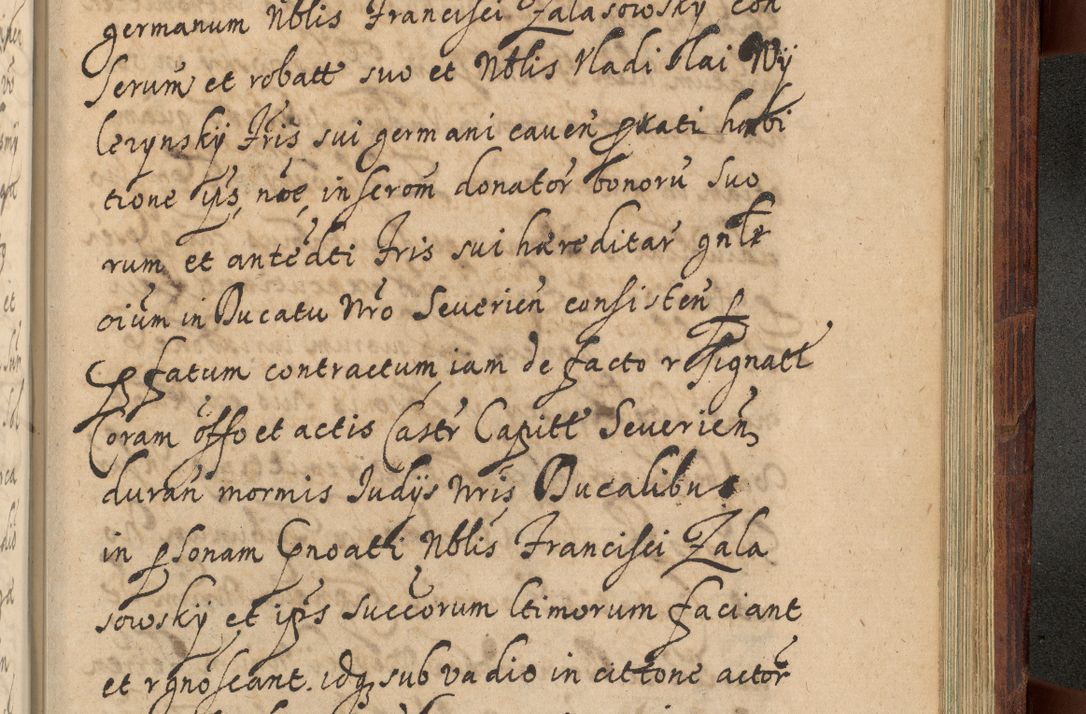 germanum Nblis Francisci Zalasowsky con
serum et robatt suo et Nblis Vladislai Wÿ
lezynskÿ Fris sui germani caven pratti habi
tione ips, noe, inserom donator bonoru suo
rum et antedti Fris sui hæreditar gnlr
oium in Ducatu Nro Severien consisten p
pfatum contractum iam de facto resignatt
Coram offo et actis Castr Capitt Severien
duran mormis Iudÿs Nris Ducalibus
in psonam pnoati Nblis Francisci Zala
sowskÿ et ips succorum ltimorum faciant
et rgnoscant. idq sub vadio in cittone actor